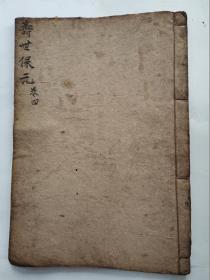 壽世保元
卷四